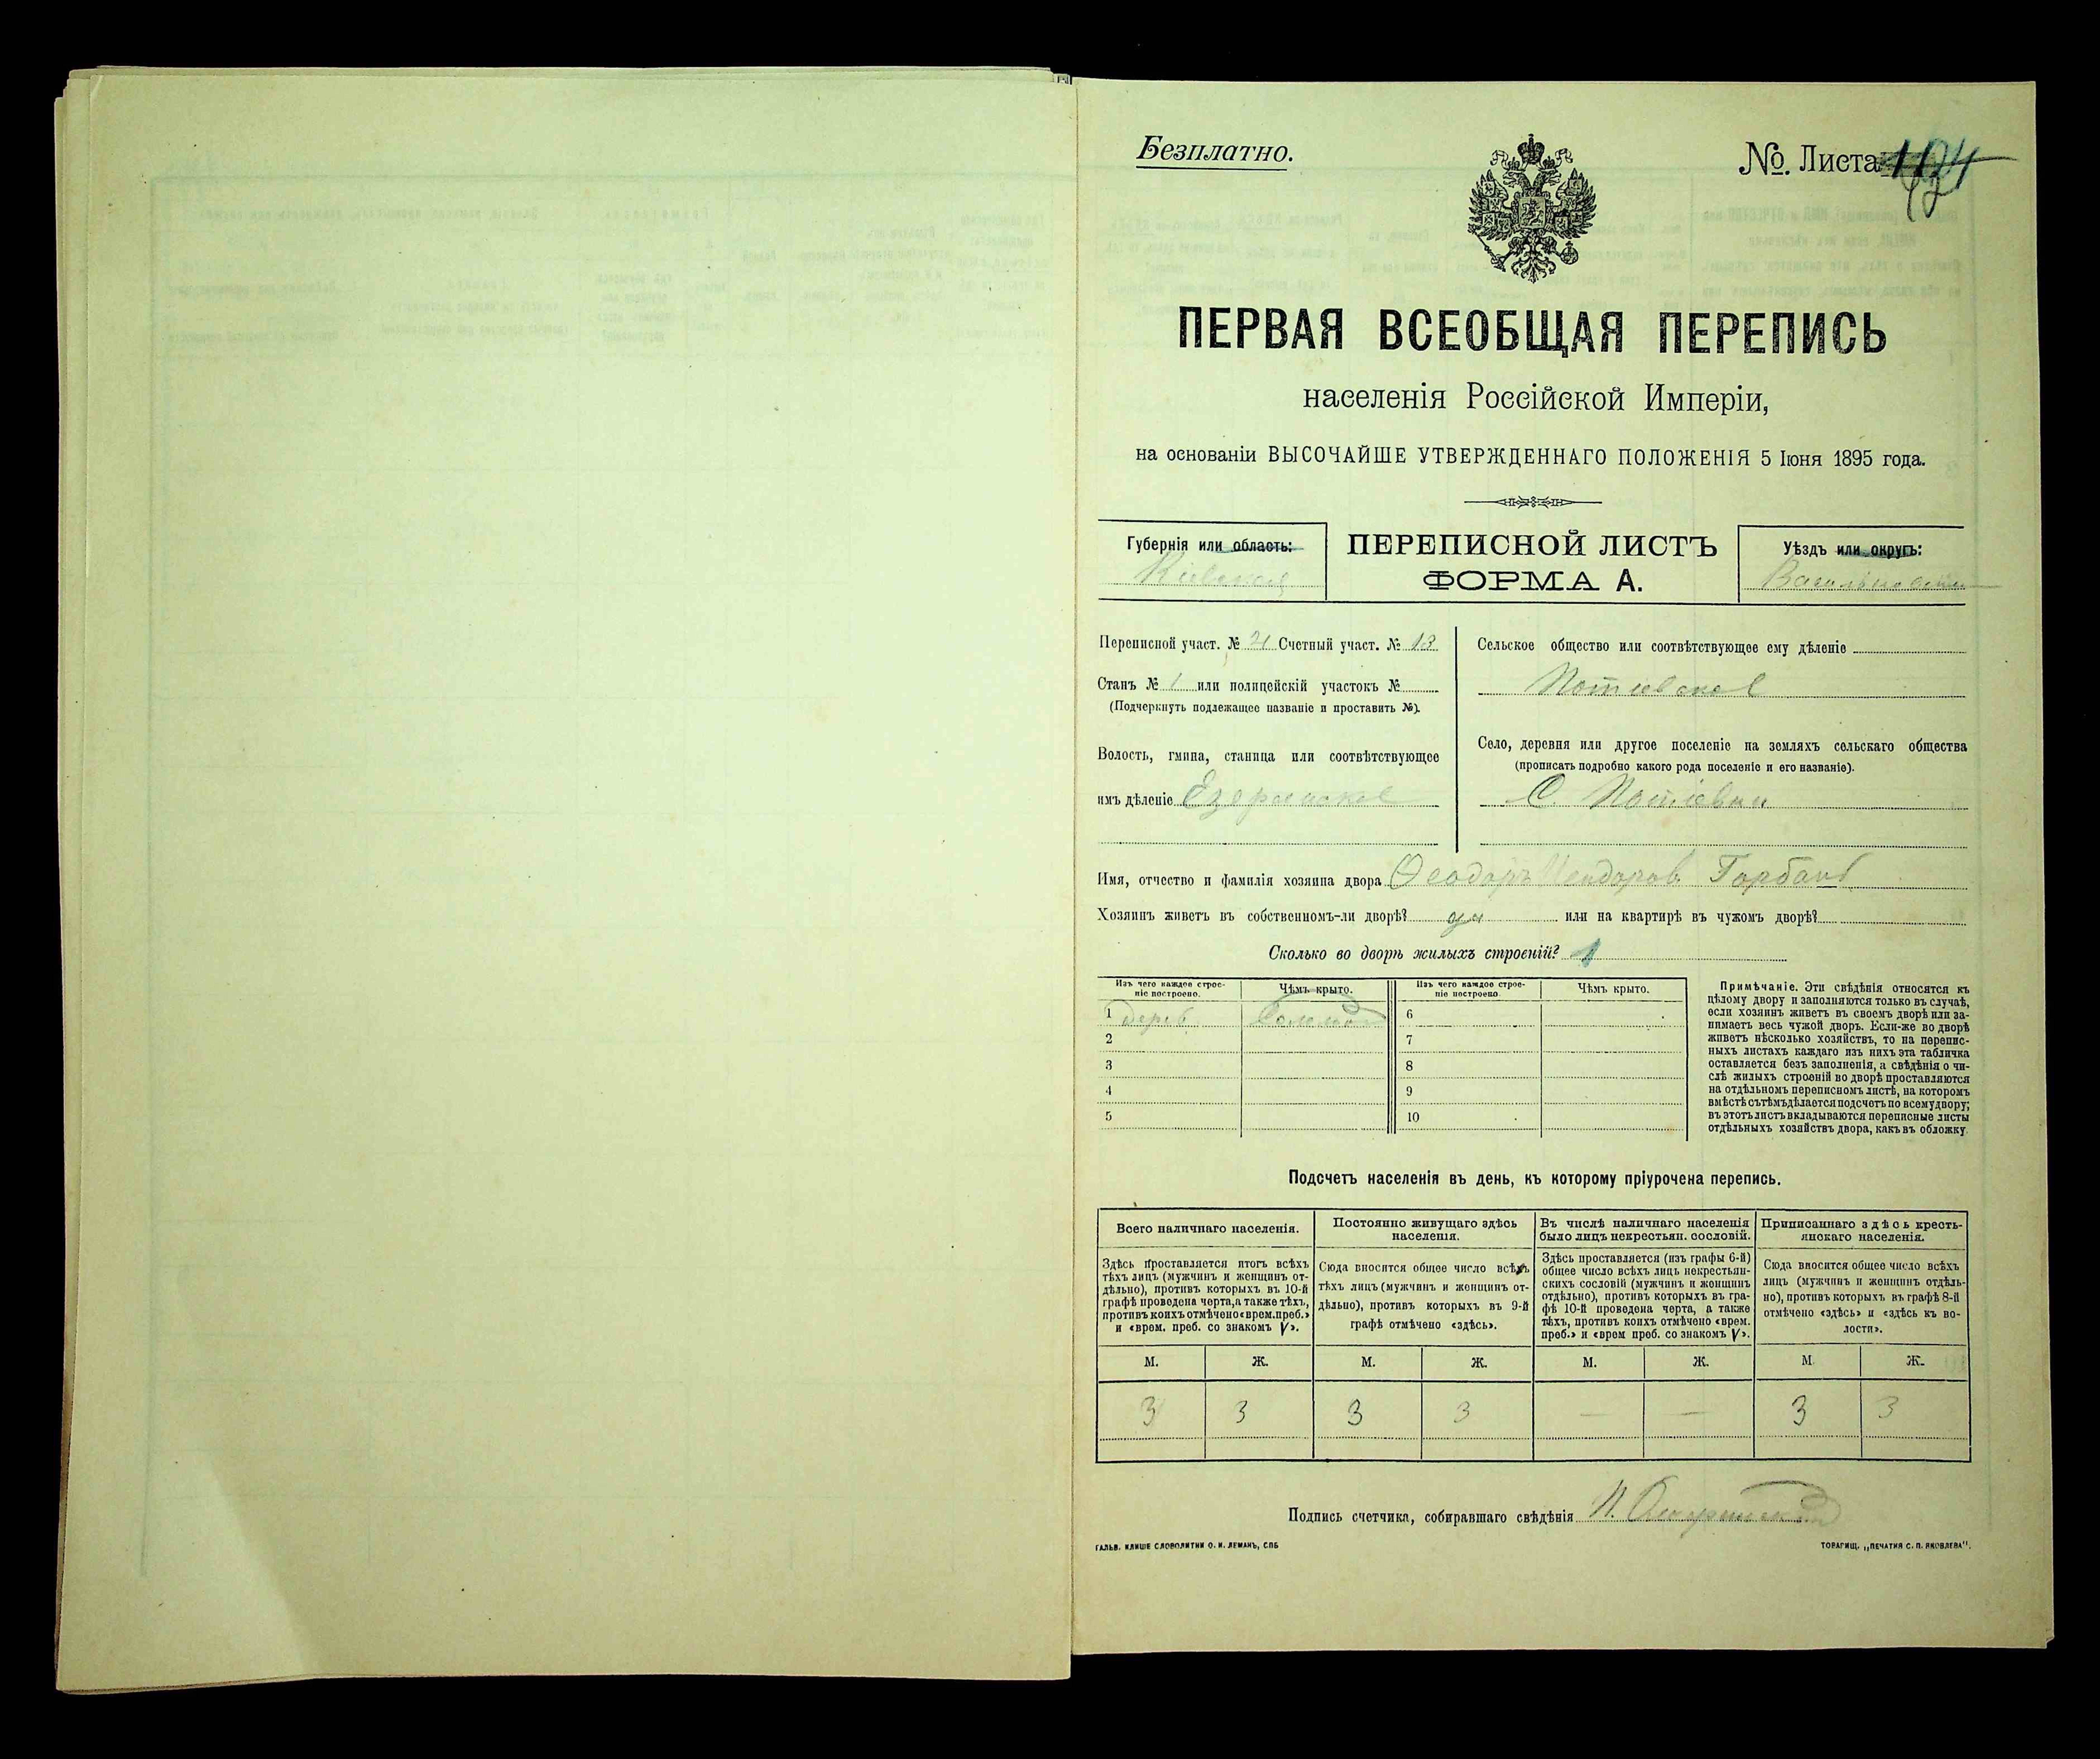 Безплатно.
№. Листа
ПЕРВАЯ ВСЕОБЩАЯ ПЕРЕПИСЬ
населенія Россійской Имперіи,
на основаніи ВЫСОЧАЙШЕ УТВЕРЖДЕННАГО ПОЛОЖЕНІЯ 5 Іюня 1895 года.
Губернія или область:
Кіевская
ПЕРЕПИСНОЙ ЛИСТЪ
ФОРМА А.
Уѣздъ или округъ:
Переписной участ. № 21 Счетный участ. № 13
Станъ № 1 или полицейскій участокъ №
(Подчеркнуть подлежащее названіе и проставить №).
Волость, гмина, станица или соотвѣтствующее
имъ дѣленіе
Сельское общество или соотвѣтствующее ему дѣленіе
Потіевское
Село, деревня или другое поселеніе на земляхъ сельскаго общества
(прописать подробно какого рода поселеніе и его названіе).
С. Потіевки
Имя, отчество и фамилія хозяина двора Ѳеодоръ Горбань
Хозяинъ живетъ въ собственномъ-ли дворѣ? да или на квартирѣ въ чужомъ дворѣ?
Сколько во дворѣ жилыхъ строеній? 1
Изъ чего каждое строе-
ніе построено.
Чѣмъ крыто.
Изъ чего каждое строе-
ніе построено
Чѣмъ крыто.
1 дерев. Соломой 6
2 7
3 8
4 9
5 10
Примѣчаніе. Эти свѣдѣнія относятся къ
цѣлому двору и заполняются только въ случаѣ,
если хозяинъ живетъ въ своемъ дворѣ или за-
нимаетъ весь чужой дворъ. Если-же во дворѣ
живетъ нѣсколько хозяйствъ, то на перепис-
ныхъ листахъ каждаго изъ нихъ эта табличка
оставляется безъ заполненія, а свѣдѣнія о чи-
слѣ жилыхъ строеній во дворѣ проставляются
на отдѣльномъ переписномъ листѣ, на которомъ
вмѣстѣ съ тѣмъ дѣлается подсчетъ по всему двору;
въ этотъ листъ вкладываются переписные листы
отдѣльныхъ хозяйствъ двора, какъ въ обложку.
Подсчетъ населенія въ день, къ которому пріурочена перепись.
Всего наличнаго населенія.
Здѣсь проставляется итогъ всѣхъ
тѣхъ лицъ (мужчинъ и женщинъ от-
дѣльно), противъ которыхъ въ 10-й
графѣ проведена черта, а также тѣхъ,
противъ коихъ отмѣчено «врем. преб.»
и «врем. преб. со знакомъ V».
Постоянно живущаго здѣсь
населенія.
Сюда вносится общее число всѣхъ
тѣхъ лицъ (мужчинъ и женщинъ от-
дѣльно), противъ которыхъ въ 9-й
графѣ отмѣчено «здѣсь».
Въ числѣ наличнаго населенія
было лицъ некрестьян. сословій.
Здѣсь проставляется (изъ графы 6-й)
общее число всѣхъ лицъ некрестьян-
скихъ сословій (мужчинъ и женщинъ
отдѣльно), противъ которыхъ въ гра-
фѣ 10-й проведена черта, а также
тѣхъ, противъ коихъ отмѣчено «врем.
преб.» и «врем преб. со знакомъ V».
Приписаннаго здѣсь кресть-
янскаго населенія.
Сюда вносится общее число всѣхъ
лицъ (мужчинъ и женщинъ отдѣль-
но), противъ которыхъ въ графѣ 8-й
отмѣчено «здѣсь» и «здѣсь къ во-
лости».
М. Ж. М. Ж. М. Ж. М. Ж.
3 3 3 3 — — 3 3
Подпись счетчика, собиравшаго свѣдѣнія
ГАЛЬВ. КЛИШЕ СЛОВОЛИТНИ О. И. ЛЕМАНЪ, СПБ
ТОВАРИЩ. „ПЕЧАТНЯ С. П. ЯКОВЛЕВА".